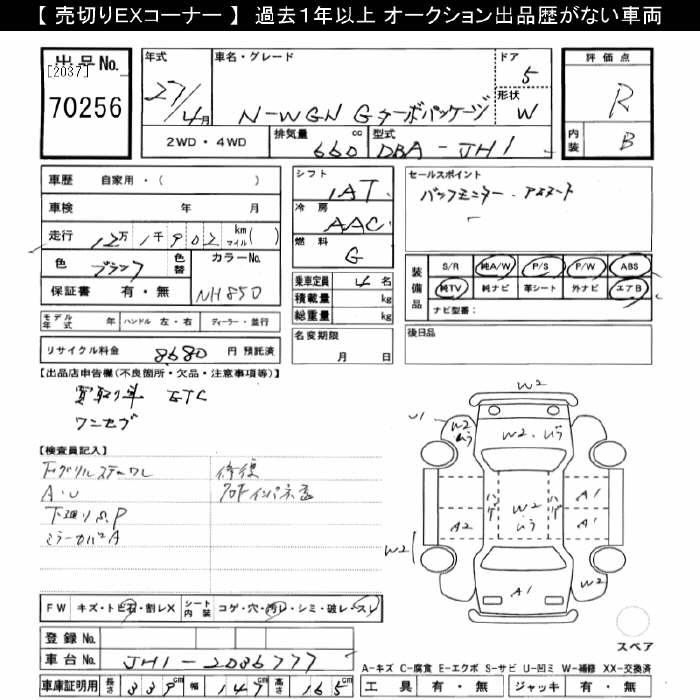 【 売切りEXコーナー 】 過去1年以上 オークション出品歴がない車両
出品No.
[2037]
70256
年式
27/4月
車名・グレード
N-WGN Gターボパッケージ
ドア
5
形状
W
2WD・4WD
排気量
660 cc
型式
DBA-JH1
評価点
R
内装
B
車歴 自家用・( )
車検 年 月
走行 12万1千902 km マイル( )
色 ブラック
色替
カラーNo.
NH850
保証書 有・無
シフト
1AT
冷房
AAC
燃料
G
乗車定員 4名
積載量 kg
総重量 kg
セールスポイント
バックモニター・アイスト
装備品
S/R 純A/W P/S P/W ABS
純TV 純ナビ 革シート 外ナビ エアB
ナビ型番:
モデル年式 年 ハンドル 左・右 ディーラー・並行
名変期限
月 日
後日品
リサイクル料金 8680 円 預託済
【出品店申告欄(不良箇所・欠品・注意事項等)】
買取り車 ETC
ワンセグ
【検査員記入】
修復
A・U
下廻り点P
ミラーカバーA
W2
U1
W2 ムラ
W2・ムラ
ハゲ
W2 ムラ
ハゲ
A1
A2
A1
W2
W2
A1
FW キズ・トビ石・割レX
シート内装 コゲ・穴・汚レ・シミ・破レ・スレ
スペア
登録No.
車台No. JH1-2036777
A-キズ C-腐食 E-エクボ S-サビ U-凹ミ W-補修 XX-交換済
車庫証明用 長さ 339 幅 147 高さ 165 cm
工具 有・無 ジャッキ 有・無